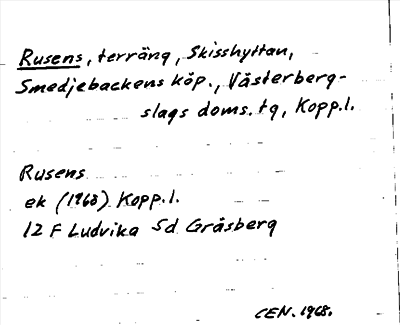 Rusens, terräng, Skisshyttan,
Smedjebackens köp., Västerberg-
slags doms. tg, Kopp.l.
Rusens
ek (1968) Kopp.l.
12 F Ludvika 5d Gräsberg
CEN. 1968.